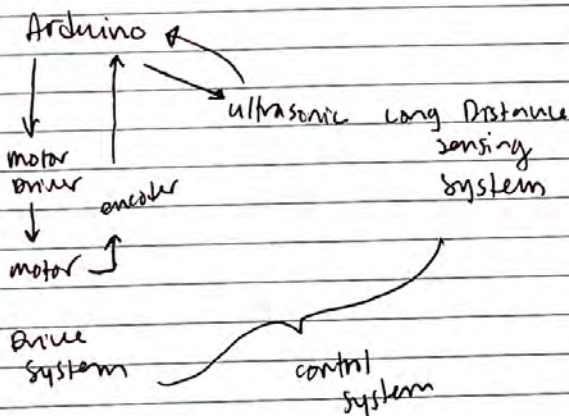 Arduino
ultrasonic
Long Distance
sensing
system
motor
Driver
encoder
motor
Drive
system
control
system